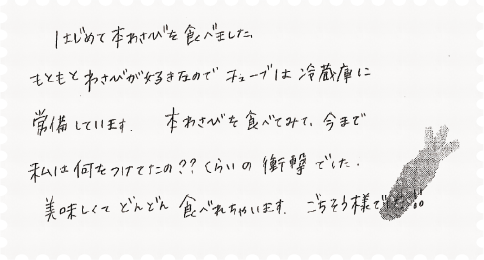 はじめて本わさびを食べました。
もともとわさびが好きなのでチューブは冷蔵庫に
常備しています。 本わさびを食べてみて、今まで
私は何をつけてたの??くらいの衝撃でした。
美味しくてどんどん食べれちゃいます。ごちそう様でした!!